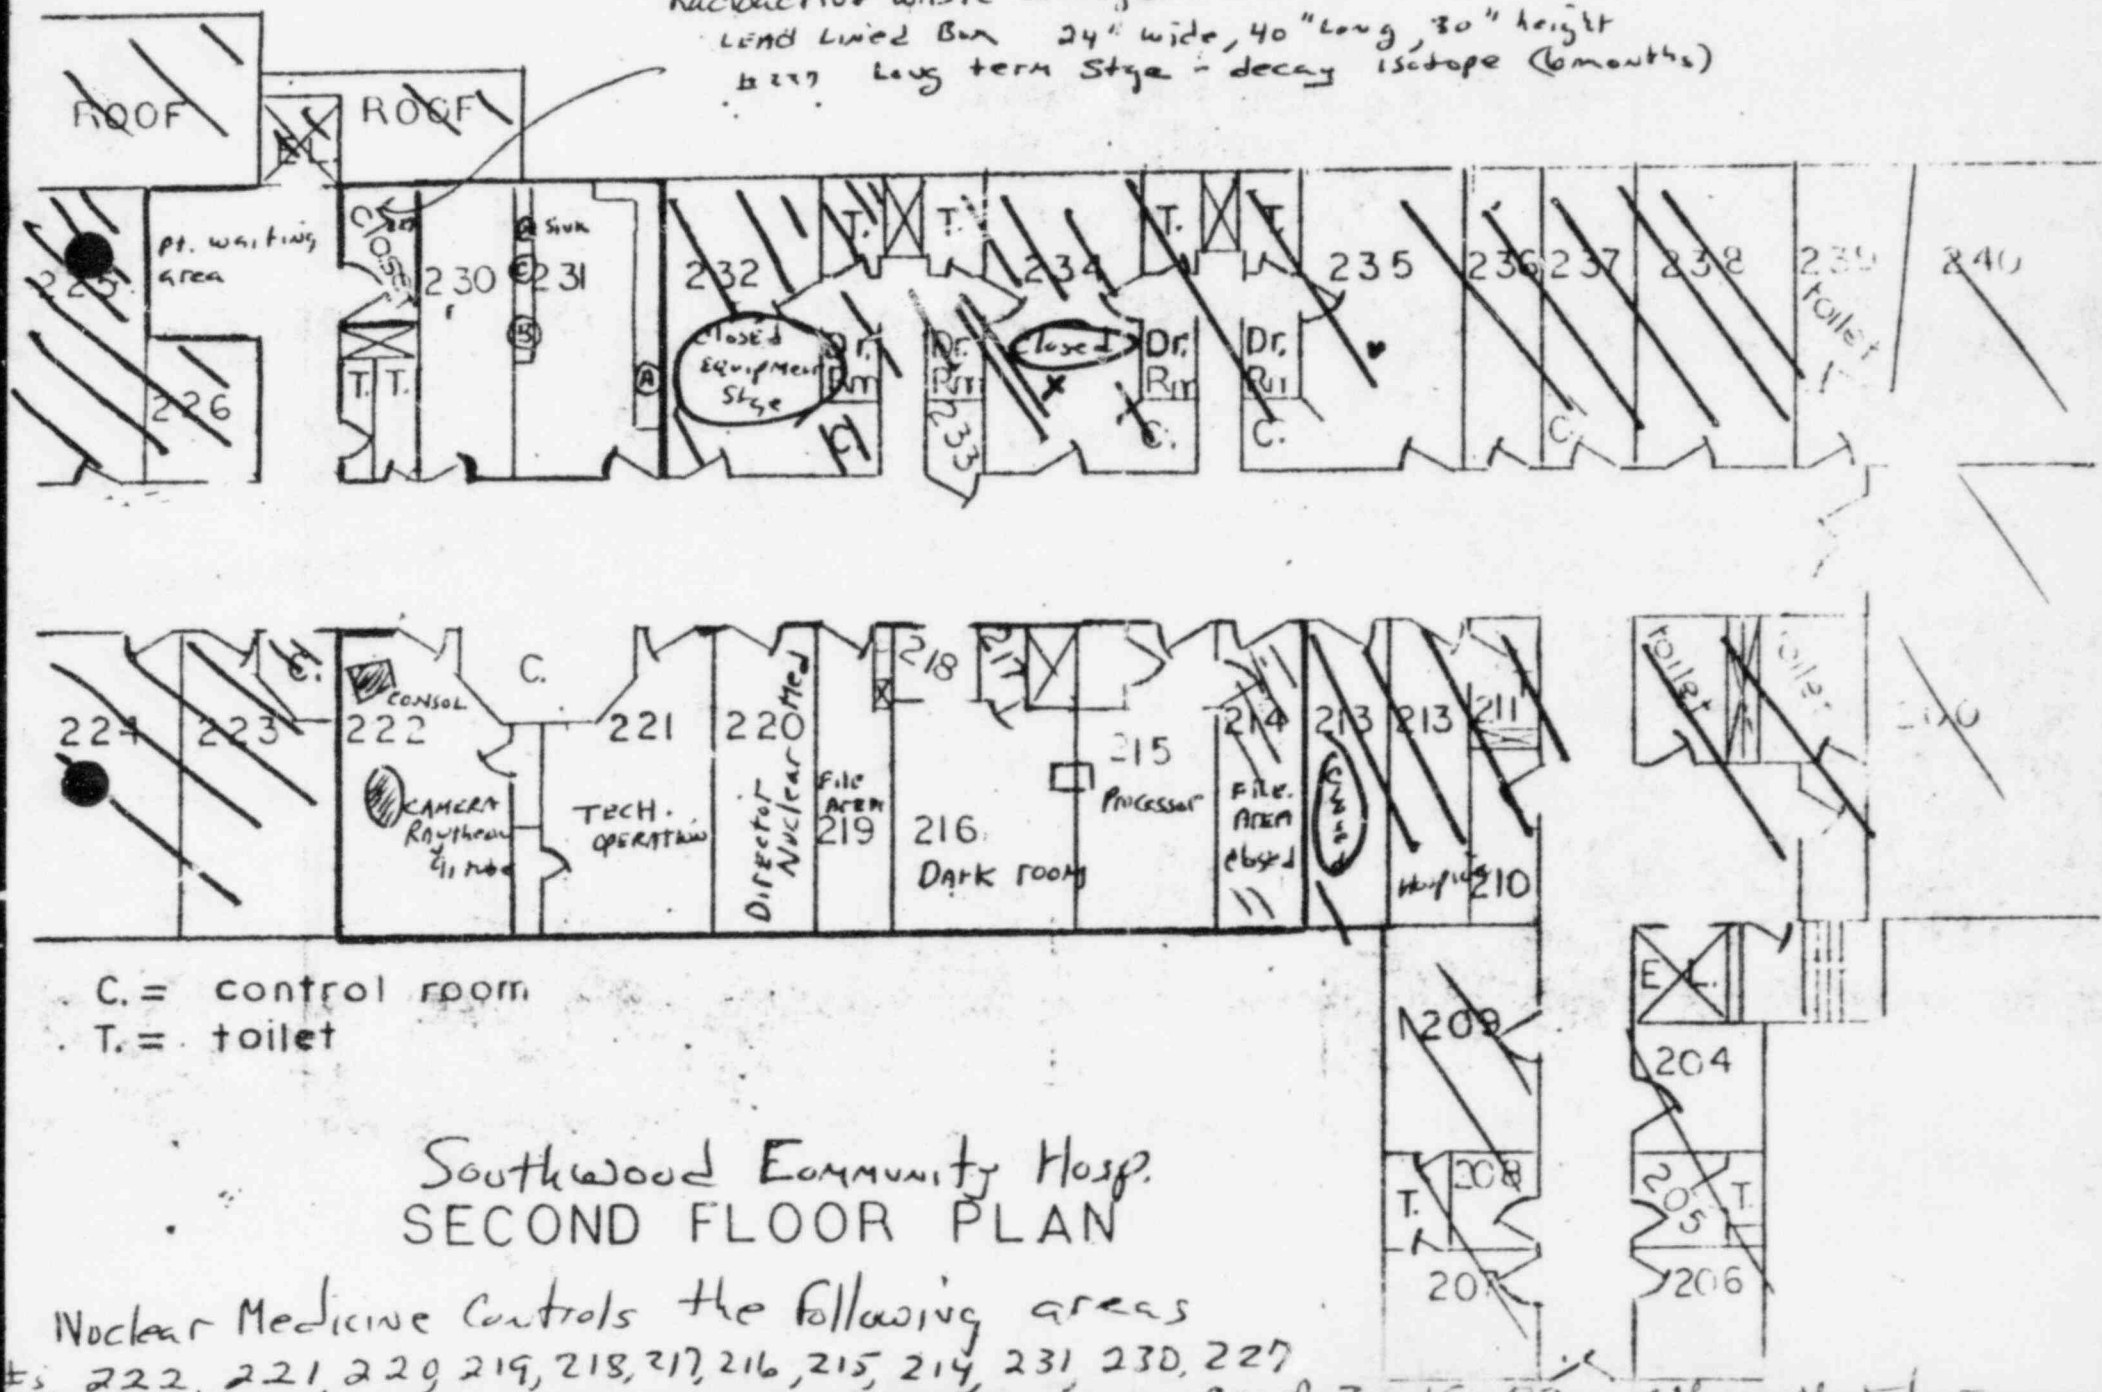 LEAD Lined Box 24" wide, 40" Long, 30" height
#227 Long term Stge - decay isotope (6 months)
ROOF
ROOF
EL.
225
pt. waiting
area
226
CLOSET
T. T.
230
Sink
231
A
232
Closed
Equipment
Stge
T.
T.
Dr.
Rm
C.
Dr.
Rm
233
234
Closed
T.
T.
Dr.
Rm
C.
Dr.
Rm
C.
235
236
C.
237
238
239
toilet
240
224
223
C.
222
CONSOL
CAMERA
Raytheon
C.
221
TECH.
OPERATION
220
Director
Nuclear Med
File
AREA
219
218
217
216
DARK ROOM
215
Processor
214
File.
AREA
closed
213
213
211
210
toilet
toilet
200
209
E L.
204
T.
208
205
T.
207
206
C. = control room
T. = toilet
Southwood Eommunity Hosp.
SECOND FLOOR PLAN
Nuclear Medicine Controls the following areas
#s 222, 221, 220, 219, 218, 217, 216, 215, 214, 231, 230, 227